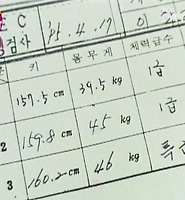 C
검사 '95. 4. 17 이
키 몸무게 체력급수
157.5 cm 39.5 kg 1급
2 159.8 cm 45 kg 1급
3 160.2 cm 46 kg 특